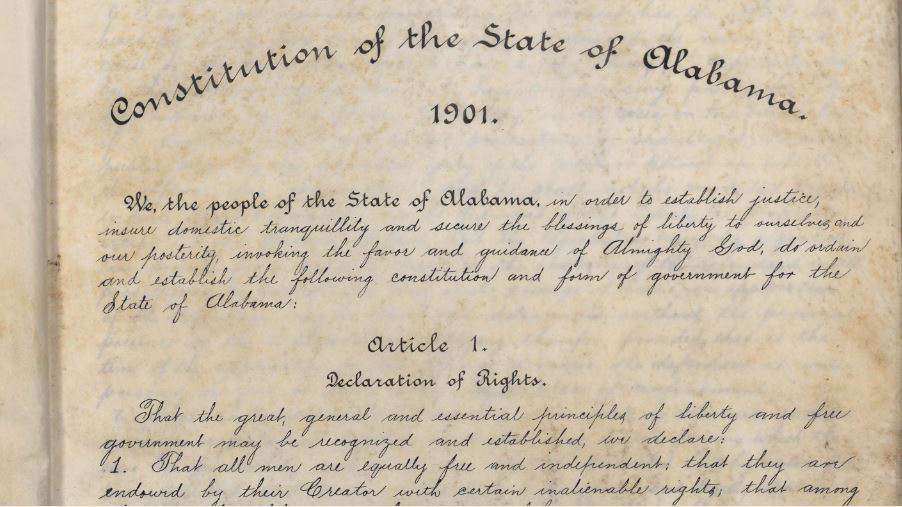 Constitution of the State of Alabama.
1901.
We, the people of the State of Alabama, in order to establish justice,
insure domestic tranquillity and secure the blessings of liberty to ourselves and
our posterity, invoking the favor and guidance of Almighty God, do ordain
and establish the following constitution and form of government for the
State of Alabama:
Article 1.
Declaration of Rights.
That the great, general and essential principles of liberty and free
government may be recognized and established, we declare:
1. That all men are equally free and independent; that they are
endowed by their Creator with certain inalienable rights; that among